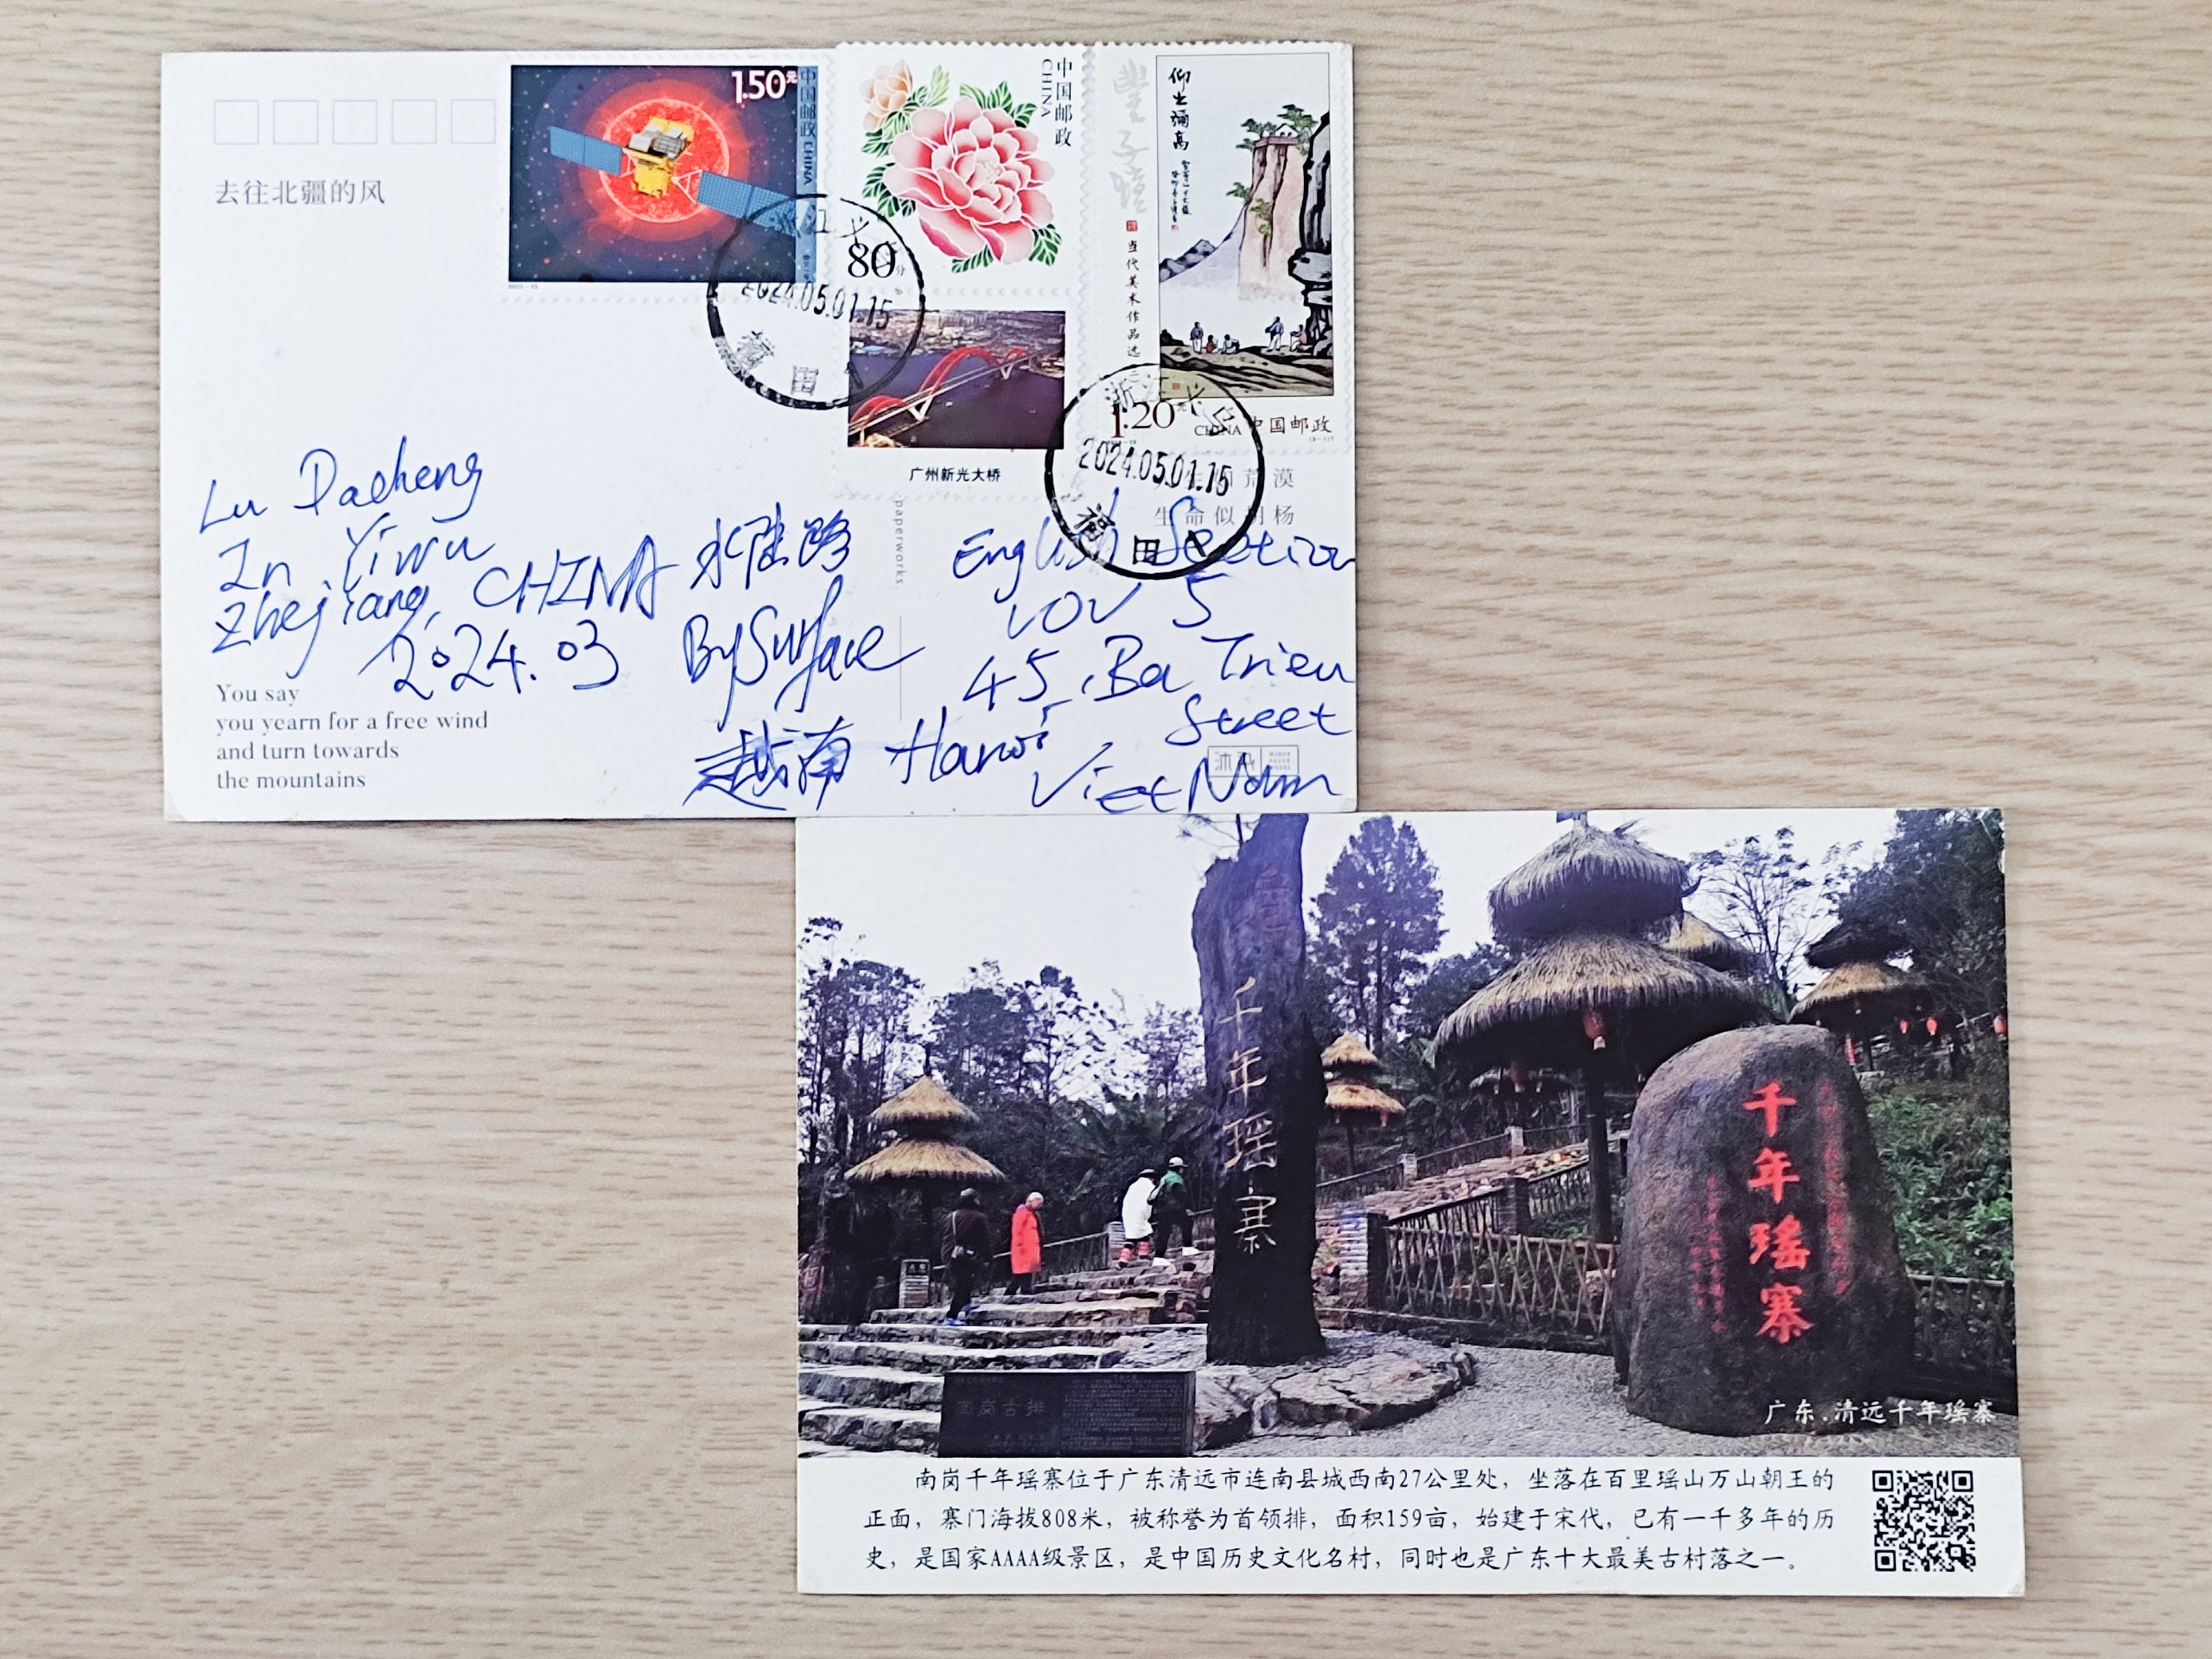 去往北疆的风
1.50元
中国邮政 CHINA
80分
中国邮政
CHINA
广州新光大桥
豐子愷
当代美术作品选
仰之弥高
1.20元
CHINA 中国邮政
浙江义
2024.05.01.15
福田
浙江义乌
2024.05.01.15
福田
荒漠
生命似胡杨
paperworks
Lu Dacheng
In Yiwu
Zhejiang, CHINA
2024.03
水陆路
By Surface
越南
English Section
VOV 5
45, Ba Trieu
Street
Hanoi
Viet Nam
You say
you yearn for a free wind
and turn towards
the mountains
千年瑶寨
千年瑶寨
南岗古排
广东.清远千年瑶寨
南岗千年瑶寨位于广东清远市连南县城西南27公里处，坐落在百里瑶山万山朝王的
正面，寨门海拔808米，被称誉为首领排，面积159亩，始建于宋代，已有一千多年的历
史，是国家AAAA级景区，是中国历史文化名村，同时也是广东十大最美古村落之一。